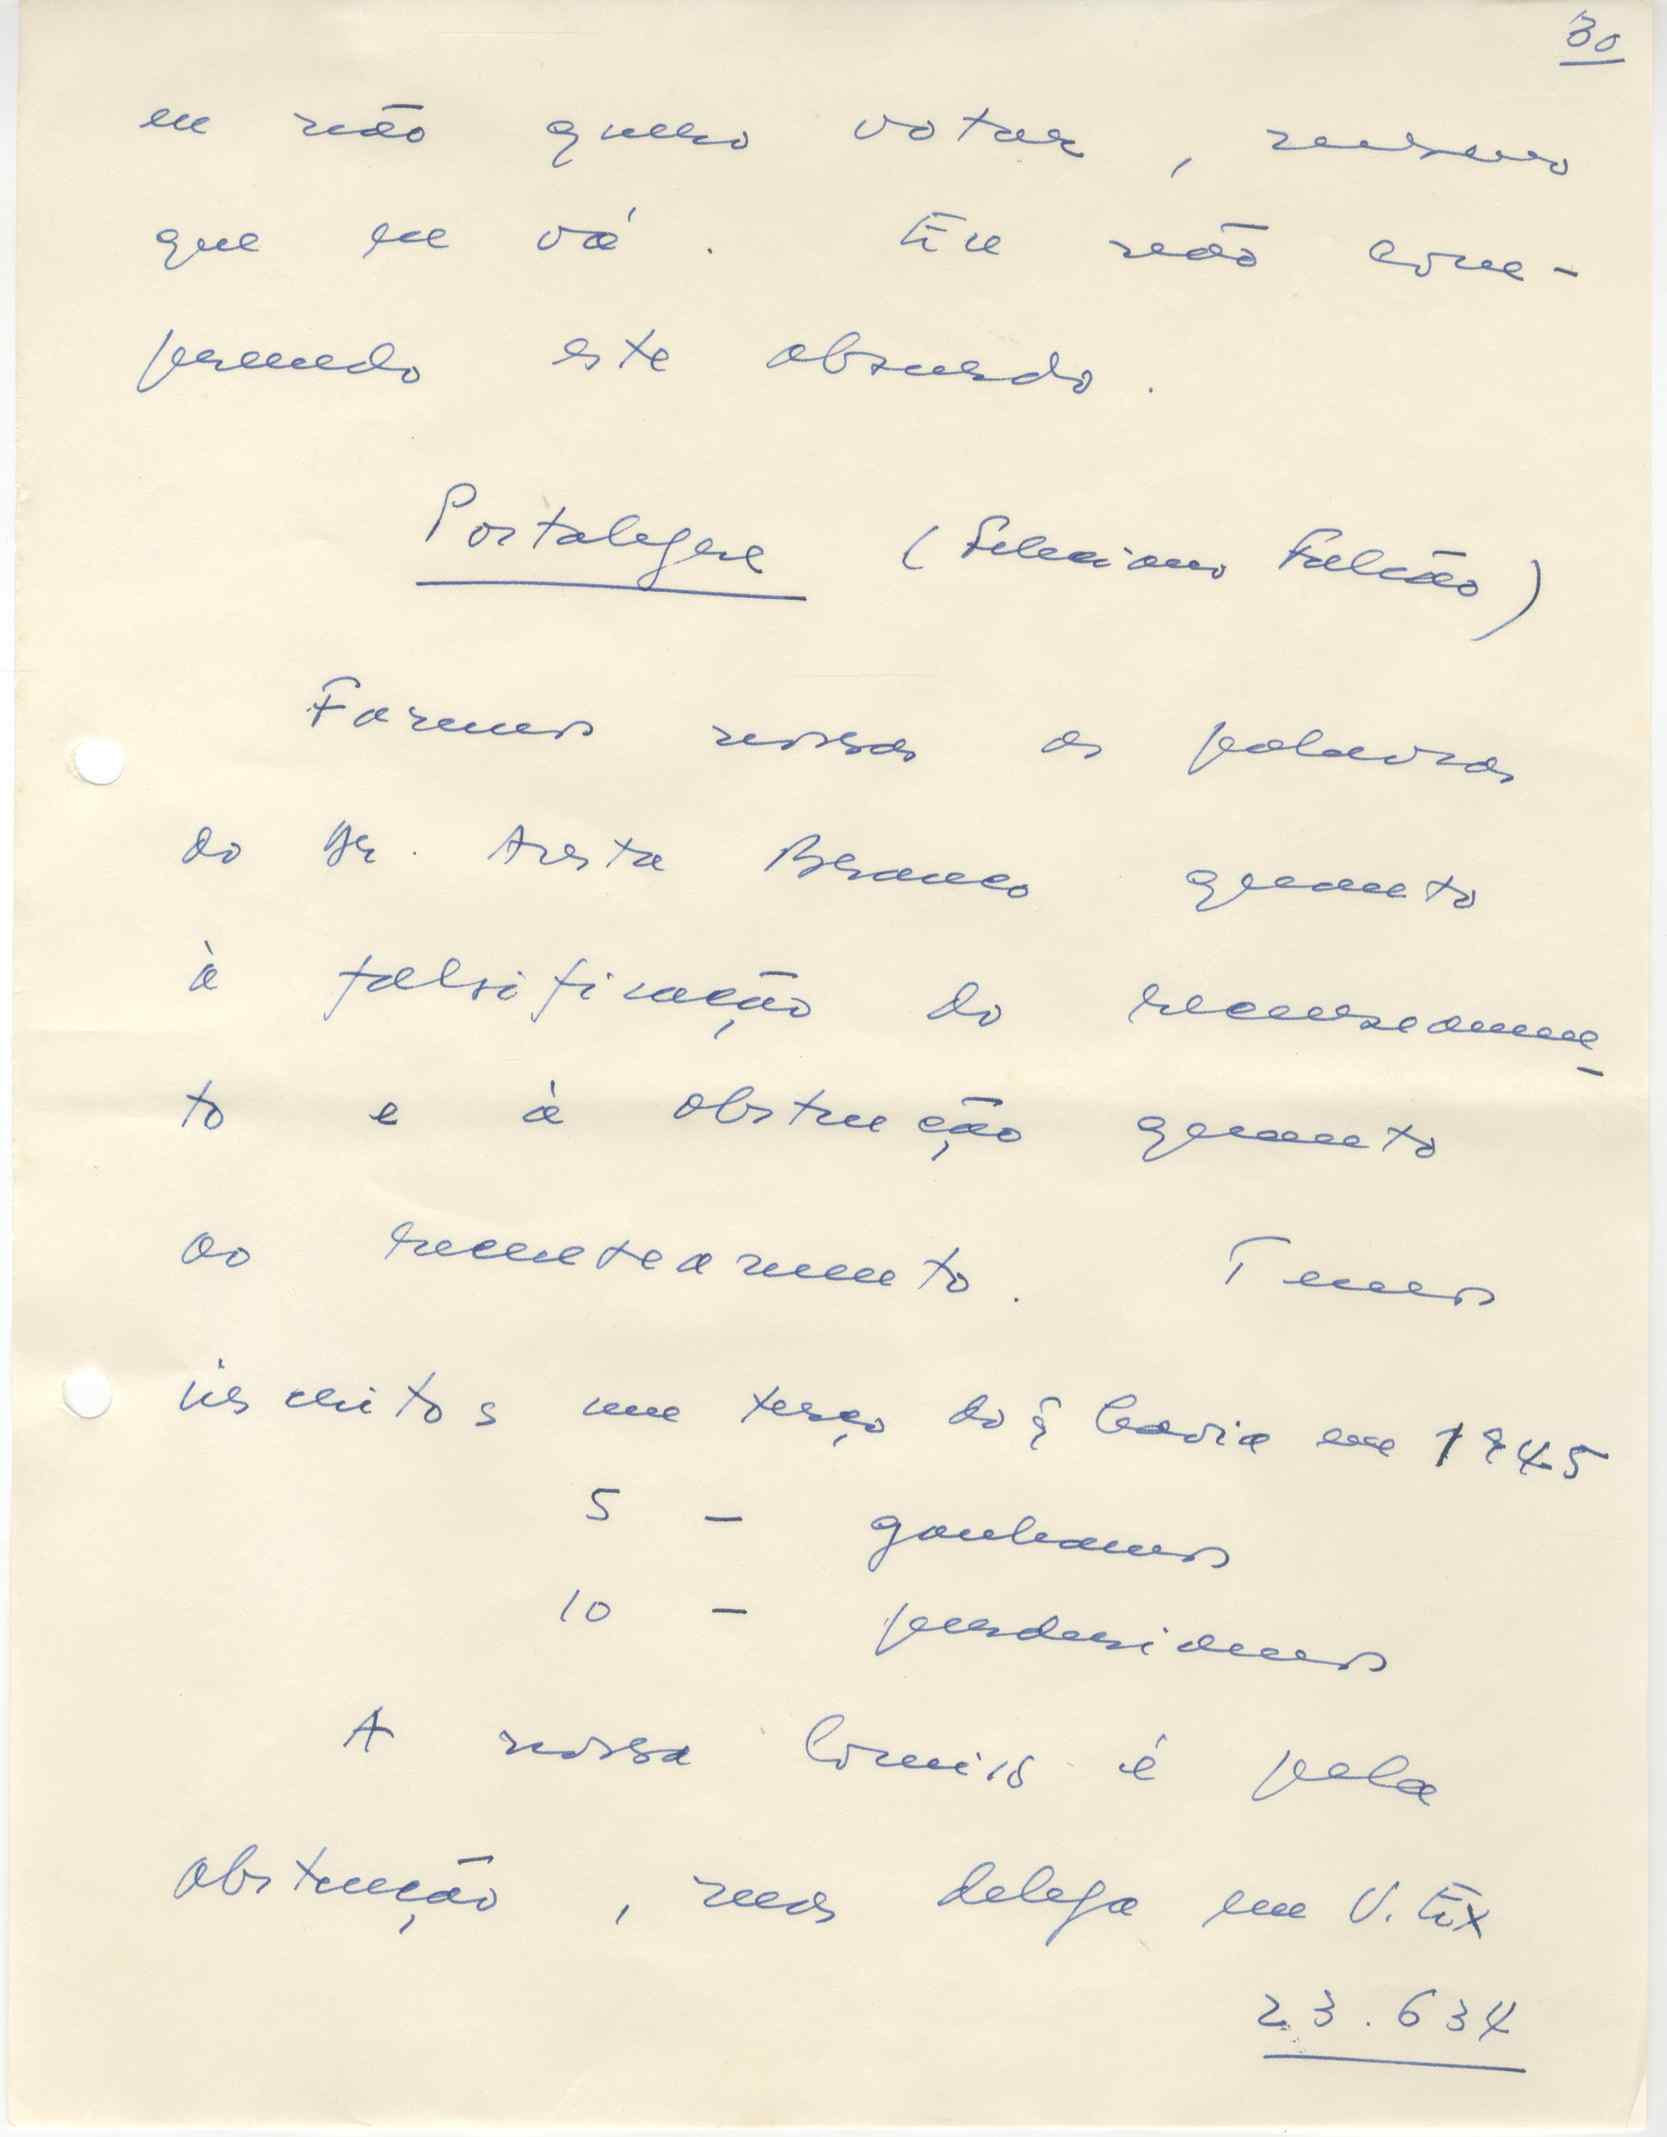 30
eu não quero votar, mesmo
que eu vá. Eu não com-
preendo este absurdo.
Portalegre (Feliciano Falcão)
Fazemos nossas as palavras
do Dr. Aresta Branco quanto
à falsificação do recenseamen-
to e à obstrução quanto
ao recenseamento. Temos
inscritos um terço do q̃ havia em 1945
5 - ganhamos
10 - perderiamos
A nossa Comis é pela
obstenção, mas delega em V. Ex
23.634